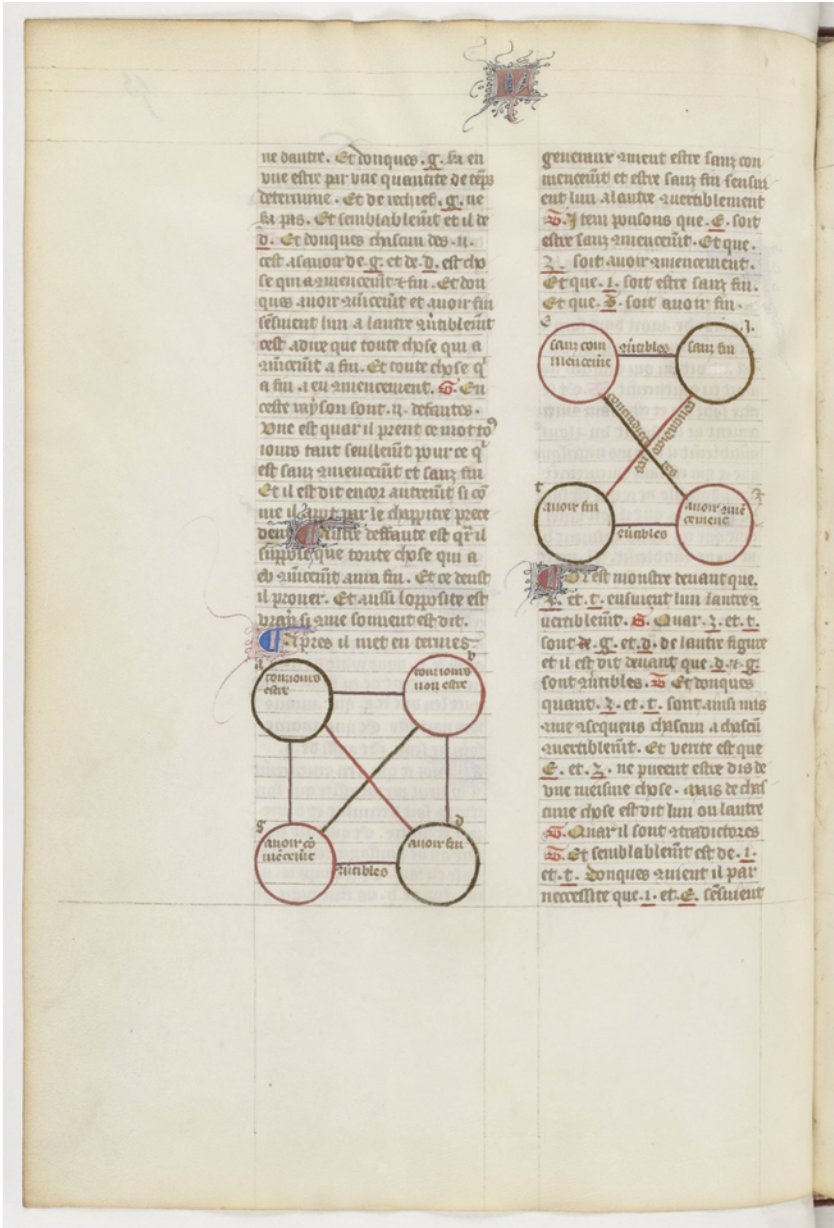 ne dautre. Et donques .g. ha en
une estre par une quantite de tēps
determine. Et de rechief .g. ne
ha pas. Et semblablemēt et il de
.d. Et donques chascun des .ii.
cest asavoir de .g. et de .d. est cho
se qui a commencemēt et fin. Et don
ques avoir commencemēt et avoir fin
sensuient lun a lautre convertiblemēt
cest a dire que toute chose qui a
commencemēt a fin. Et toute chose qͥ
a fin a eu commencement. G. En
ceste rayson sont .ii. defautes.
Une est quar il prent ce mot to9
iours tant seullemēt pour ce qͥ
est sanz commencemēt et sanz fin
Et il est dit encor autremēt si cō
me il apert par le chappitre prece
dent Lautre deffaute est qͬ il
suppose que toute chose qui a
eu commencemēt aura fin. Et ce deust
il prouer. Et aussi lopposite est
vray si comme souvent est dit.
Apres il met en termes
a
b
touiours
estre
touiours
non estre
g
d
avoir cō
mēceme
avoir fin
cōvtibles
generaux comment estre sanz com
mencemēt et estre sanz fin sensui
ent lun a lautre convertiblement
T. Item posons que .E. soit
estre sanz commencemēt. Et que
.z. soit avoir commencement.
Et que .i. soit estre sanz fin.
Et que .t. soit avoir fin.
e
.i.
sanz com
menceme
cōvtibles
sanz fin
contradictoires
t
z
avoir fin
avoir comē
cement
cōvtibles
Or est monstre devant que.
.z. et .t. ensuient lun lautre con
vertiblemēt. G. Quar .z. et .t.
sont .g. et .d. de lautre figure
et il est dit devant que .d. et .g.
sont cōvtibles. T. Et donques
quant .z. et .t. sont ainsi mis
comme consequens chascun a chascū
convertiblemēt. Et verite est que
.E. et .z. ne puent estre dis de
une meisme chose. Mais de chas
cune chose est dit lun ou lautre
G. Quar il sont contradictores
T. Et semblablemēt est de .i.
et .t. Donques convient il par
necessite que .i. et .E. sensuient